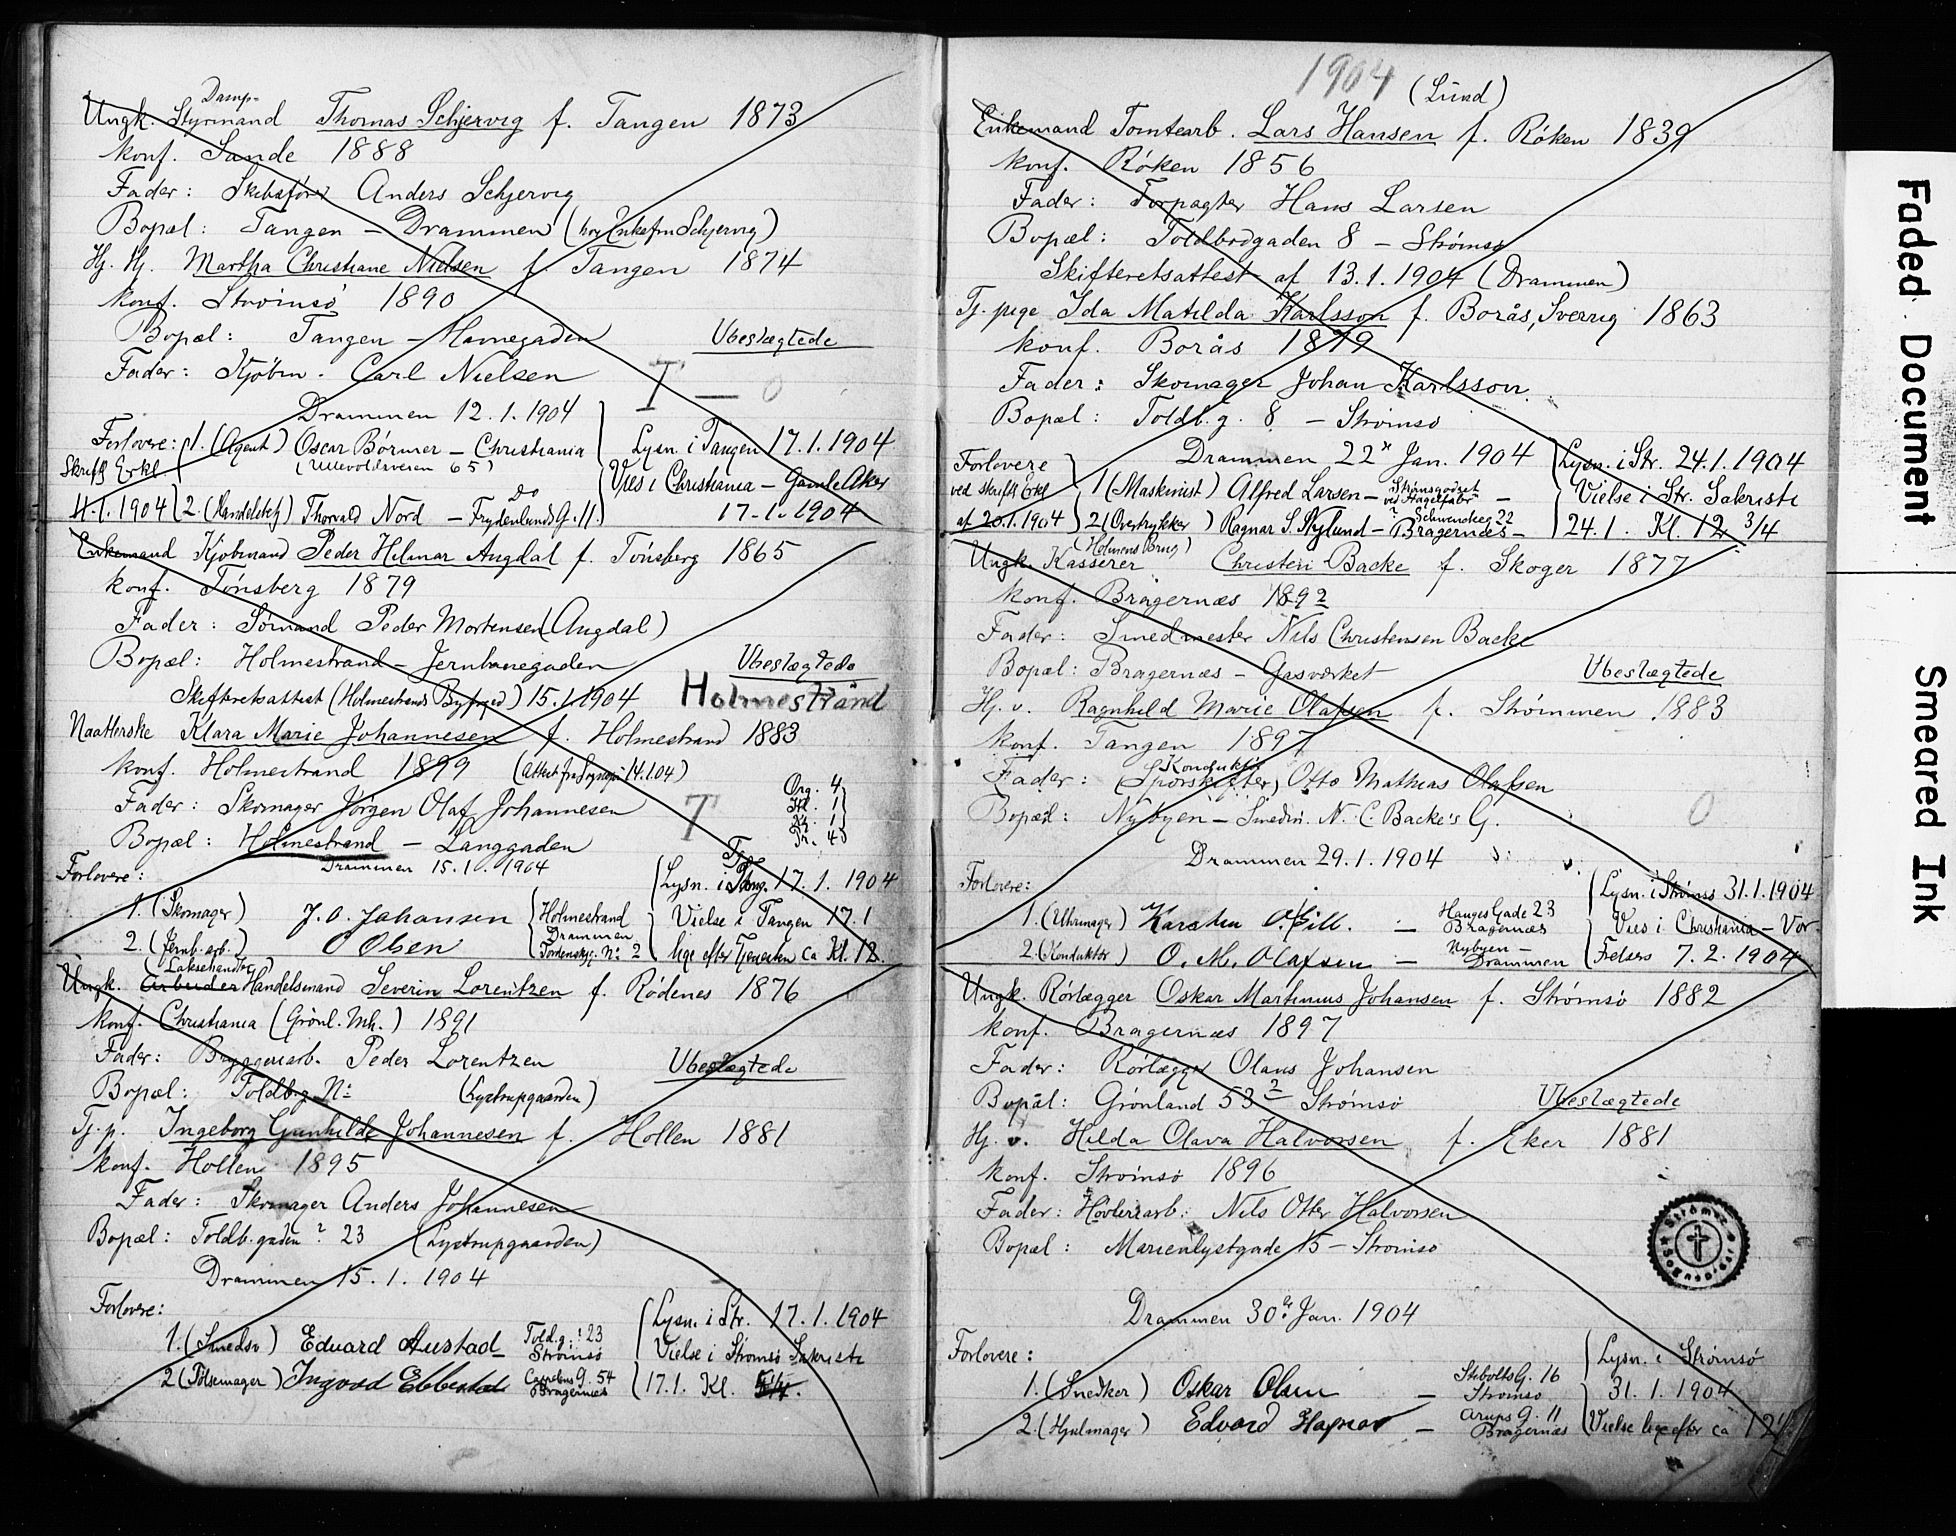 Damp-
Ungk. Styrmand Thomas Schjervig f. Tangen 1873
konf. Sande 1888
Fader: Skibsfører Anders Schjervig
Bopæl: Tangen – Drammen (hos Enkefru Schjervig)
Hj. Hj. Martha Christiane Nielsen f. Tangen 1874
konf. Strømsø 1890
Bopæl: Tangen – Havnegaden Ubeslægtede
Fader: Kjøbm. Carl Nielsen T – 0
Drammen 12.1.1904
Forlovere: 1. (Agent) Oscar Børmer – Christiania Lysn. i Tangen 17.1.1904
Skriftl. Erkl. (Ullevoldsveien 65) Vies i Christiania – Gamle Aker
11.1.1904 2. (Handelsbetj) Thorvald Nord – Frydenlunds G. 11. Do 17-1-1904
Enkemand Kjøbmand Peder Hilmar Angdal f. Tønsberg 1865
konf. Tønsberg 1879
Fader: Sømand Peder Mortensen (Angdal)
Bopæl: Holmestrand – Jernbanegaden Ubeslægtede
Skifteretsattest (Holmestrands Byfoged) 15.1.1904 Holmestrand
Naatterske Klara Marie Johannesen f. Holmestrand 1883
konf. Holmestrand 1899 (Attest fra Sognepr. 14.1.04)
Fader: Skomager Jørgen Olaf Johannesen T
Org. 4
Kl. 1
Kg. 1
Pr. 4
Bopæl: Holmestrand – Langgaden
Drammen 15.1.1904
Forlovere: Lysn. i Tang. 17.1.1904
1. (Skomager) J. O. Johansen Holmestrand Vielse i Tangen 17.1
2. (Jernb. arb.) O Olsen Drammen Tordenskj. No 2 lige efter Tjenesten ca Kl. 12.
(Laksehandler)
Ungk. Arbeider Handelsmand Severin Lorentzen f. Rødenes 1876
konf. Christiania (Grønl. Mh.) 1891
Fader: Bryggeriarb. Peder Lorentzen Ubeslægtede
Bopæl: Toldb.g No (Lystrupgaarden)
Tj. p. Ingeborg Gunhilde Johannesen f. Hollen 1881
konf. Hollen 1895
Fader: Skomager Anders Johannesen
Bopæl: Toldb. gaden ? 23 (Lystrupgaarden)
Drammen 15.1.1904
Forlovere: Lysn. i Str. 17.1.1904
1. (Smedsv) Edvard Austad – Toldg. ? 23 Strømsø Vielse i Strømsø Sakristi
2 (Pølsemager) Ingvod Ebbestad G. 54 Bragernæs 17.1. Kl.
1904 (Lund)
Enkemand Tomtearb. Lars Hansen f. Røken 1839
konf. Røken 1856
Fader: Forpagter Hans Larsen
Bopæl: Toldbodgaden 8 – Strømsø
Skifteretsattest af 13.1.1904 (Drammen)
Tj. pige Ida Matilda Karlsson f. Borås, Sverrig 1863
konf. Borås 1879
Fader: Skomager Johan Karlsson
Bopæl: Toldb. g. 8 – Strømsø
Drammen 22 Jan. 1904 Lysn. i Str. 24.1.1904
Forlovere ved skriftl. Erkl. af 20.1.1904
1 (Maskinist) Alfred Larsen – Strømsgodset ved Hagelfabr – Vielse i Str. Sakristi
2 (Overtrykker) Ragnar S. Nylund – Schwendeg 22 Bragernæs – 24.1. Kl. 12 3/4
(Holmens Brug)
Ungk. Kasserer Christen Backe f. Skoger 1877
konf. Bragernæs 1892
Fader: Smedmester Nils Christensen Backe
Bopæl: Bragernæs – Gasværket Ubeslægtede
Hj. v. Ragnhild Marie Olafsen f. Strømmen 1883
konf. Tangen 1897
Konduktør
Fader: (Sporskifter) Otto Mathias Olafsen
Bopæl: Nybyen – Smedm. N. C. Backe's G. 0
Drammen 29.1.1904
Forlovere: Lysn. i Strømsø 31.1.1904
1. (Uhrmager) Karsten – Hauges Gade 23 Bragernæs Vies i Christiania – Vor
2. (Konduktør) O. M. Olafsen – Nybyen – Drammen Frelsers 7.2.1904
Ungk. Rørlægger Oskar Martinius Johansen f. Strømsø 1882
konf. Bragernæs 1897
Fader: Rørlægger Olaus Johansen
Bopæl: Grønland 53 2 Strømsø Ubeslægtede
Hj. v. Hilda Olava Halvorsen f. Eker 1881
konf. Strømsø 1896
Fader: Høvleriarb. Nils Otter Halvorsen
Bopæl: Marienlystgade 15 – Strømsø
Drammen 30 Jan. 1904
Forlovere: Lysn. i Strømsø
1. (Snedker) Oskar Olsen – Stibolts G. 16 Strømsø 31.1.1904
2. (Hjulmager) Edvard – Arups G. 11 Bragernæs Vielse lige efter ca 12
Faded Document
Smeared Ink